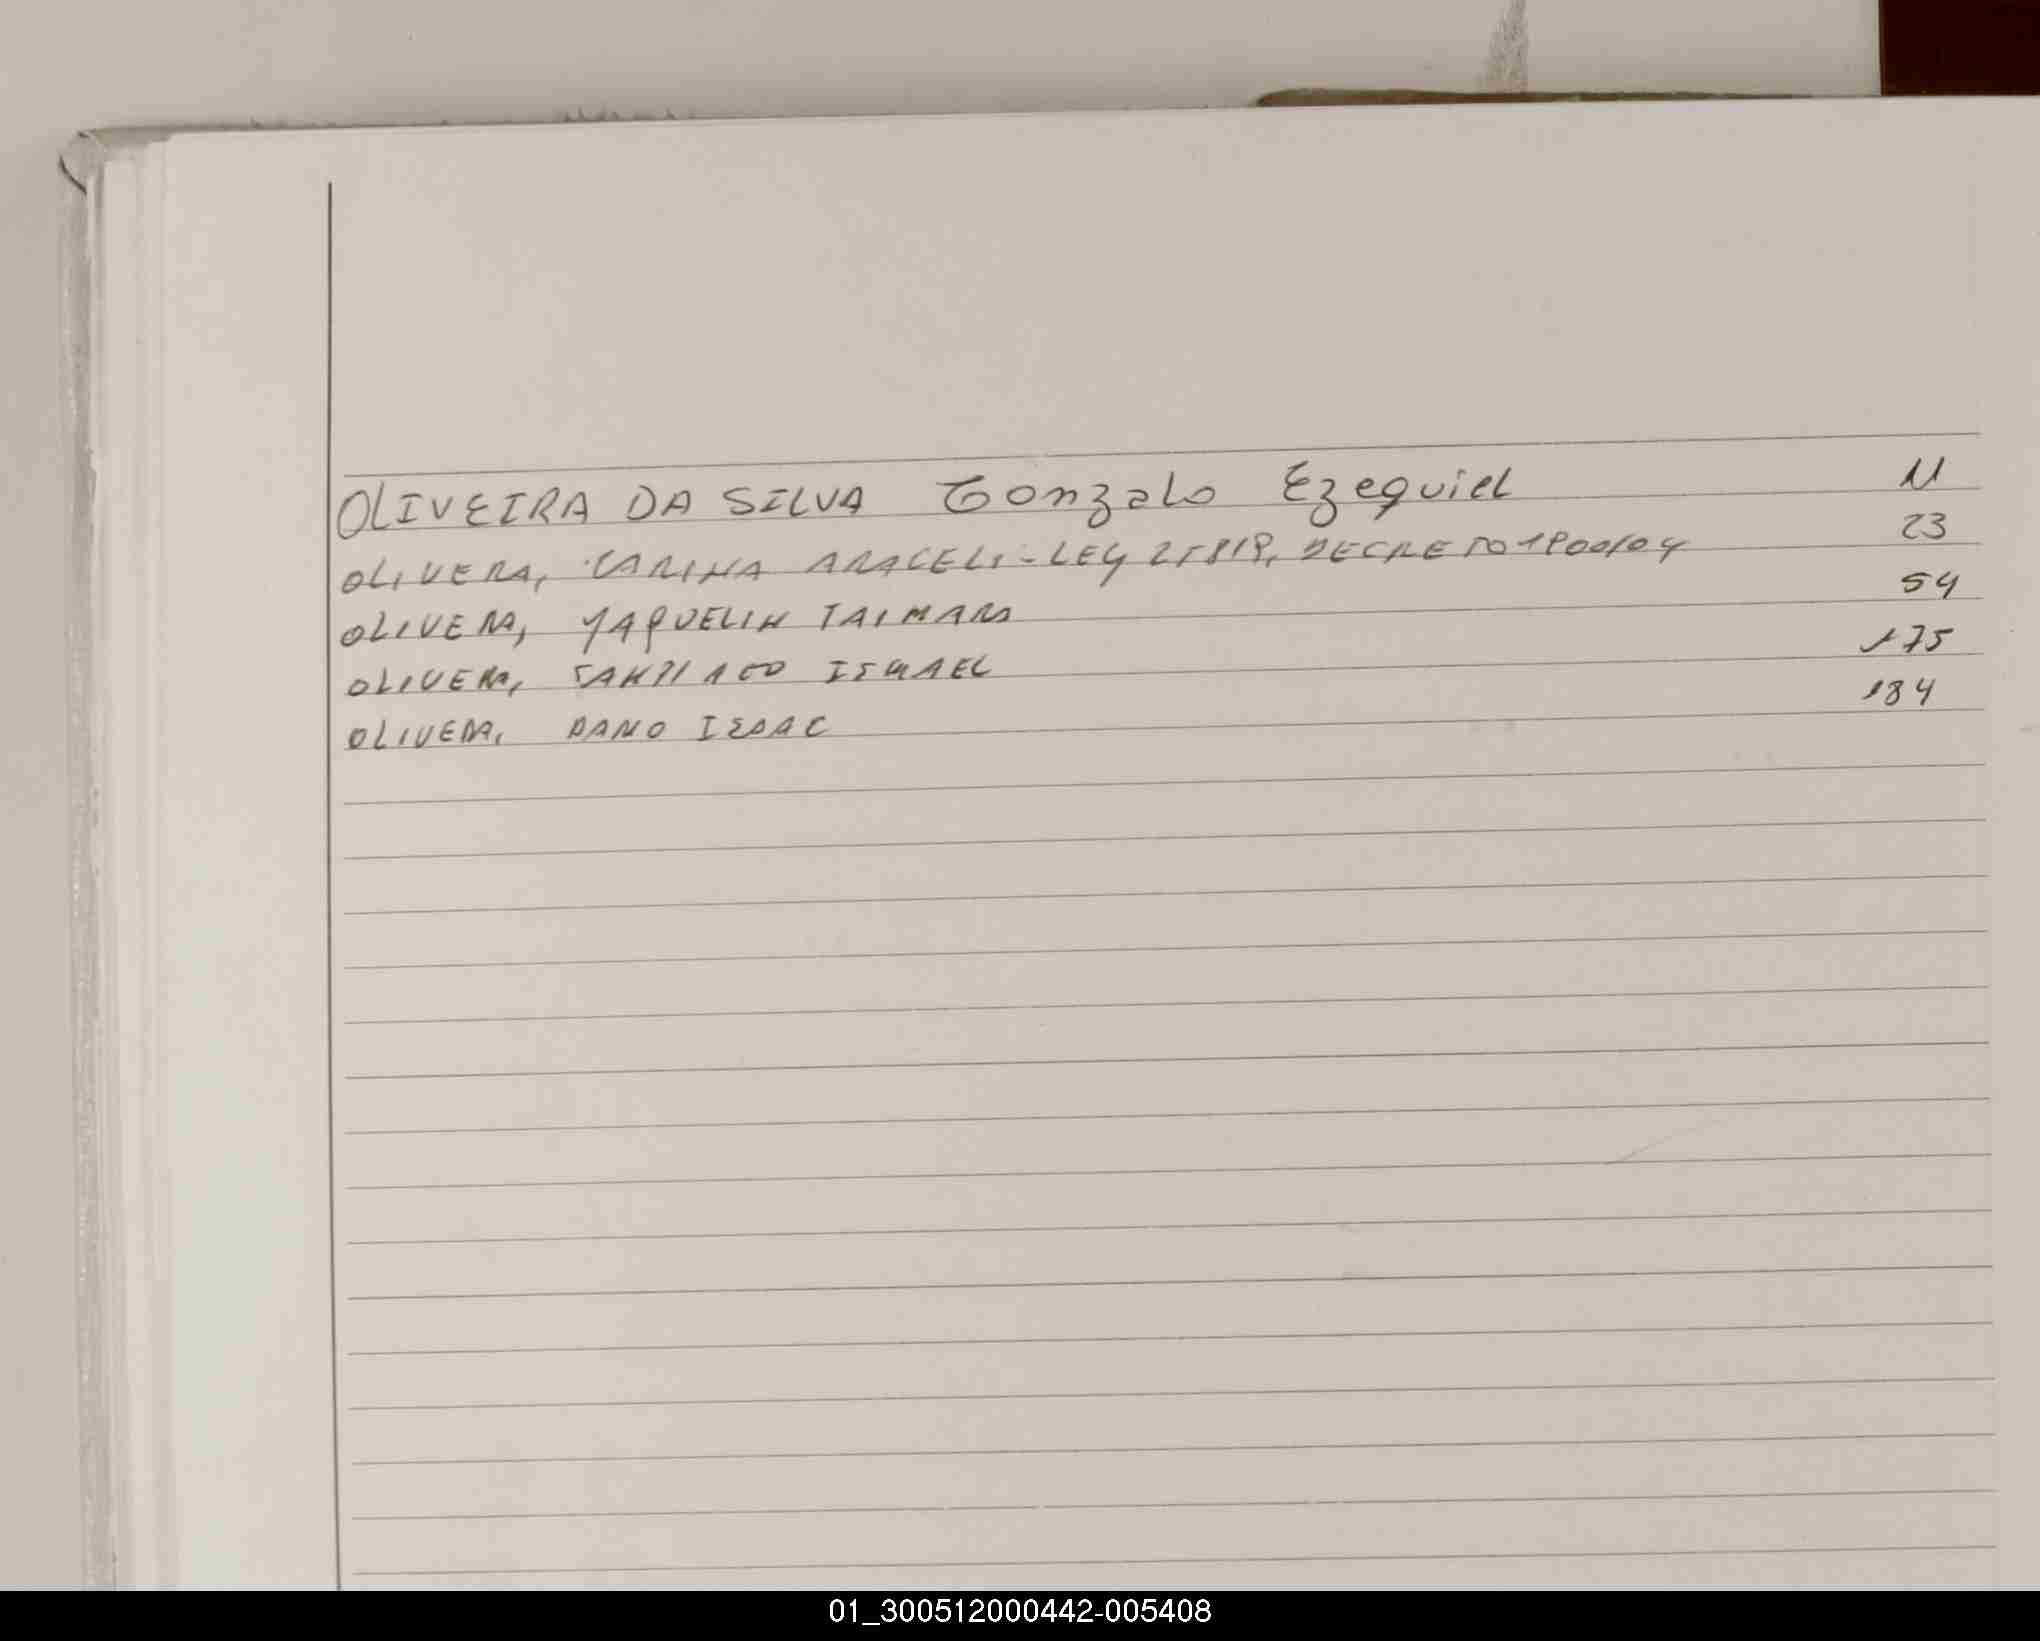 OLIVEIRA DA SILVA Gonzalo Ezequiel 11
OLIVERA, CARINA ARACELI - LEY 25819, DECRETO 1800/04 23
OLIVERA, YAQUELIN TAIMARA 54
OLIVERA, SANTIAGO ISMAEL 175
OLIVERA, ISAAC 184
01_300512000442-005408